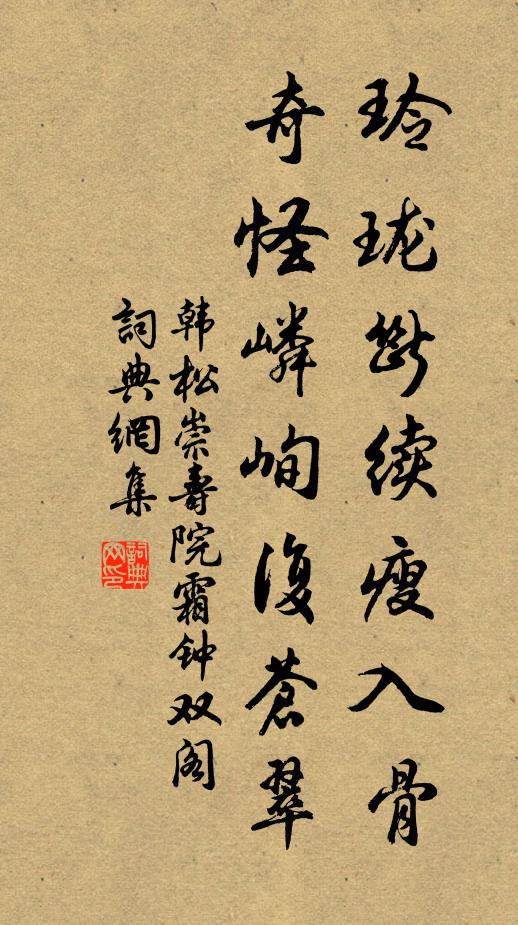 玲珑断续瘦入骨
奇怪嶙峋復苍翠
韩松崇寿院霜钟双阁
詞典網集
詞典网印